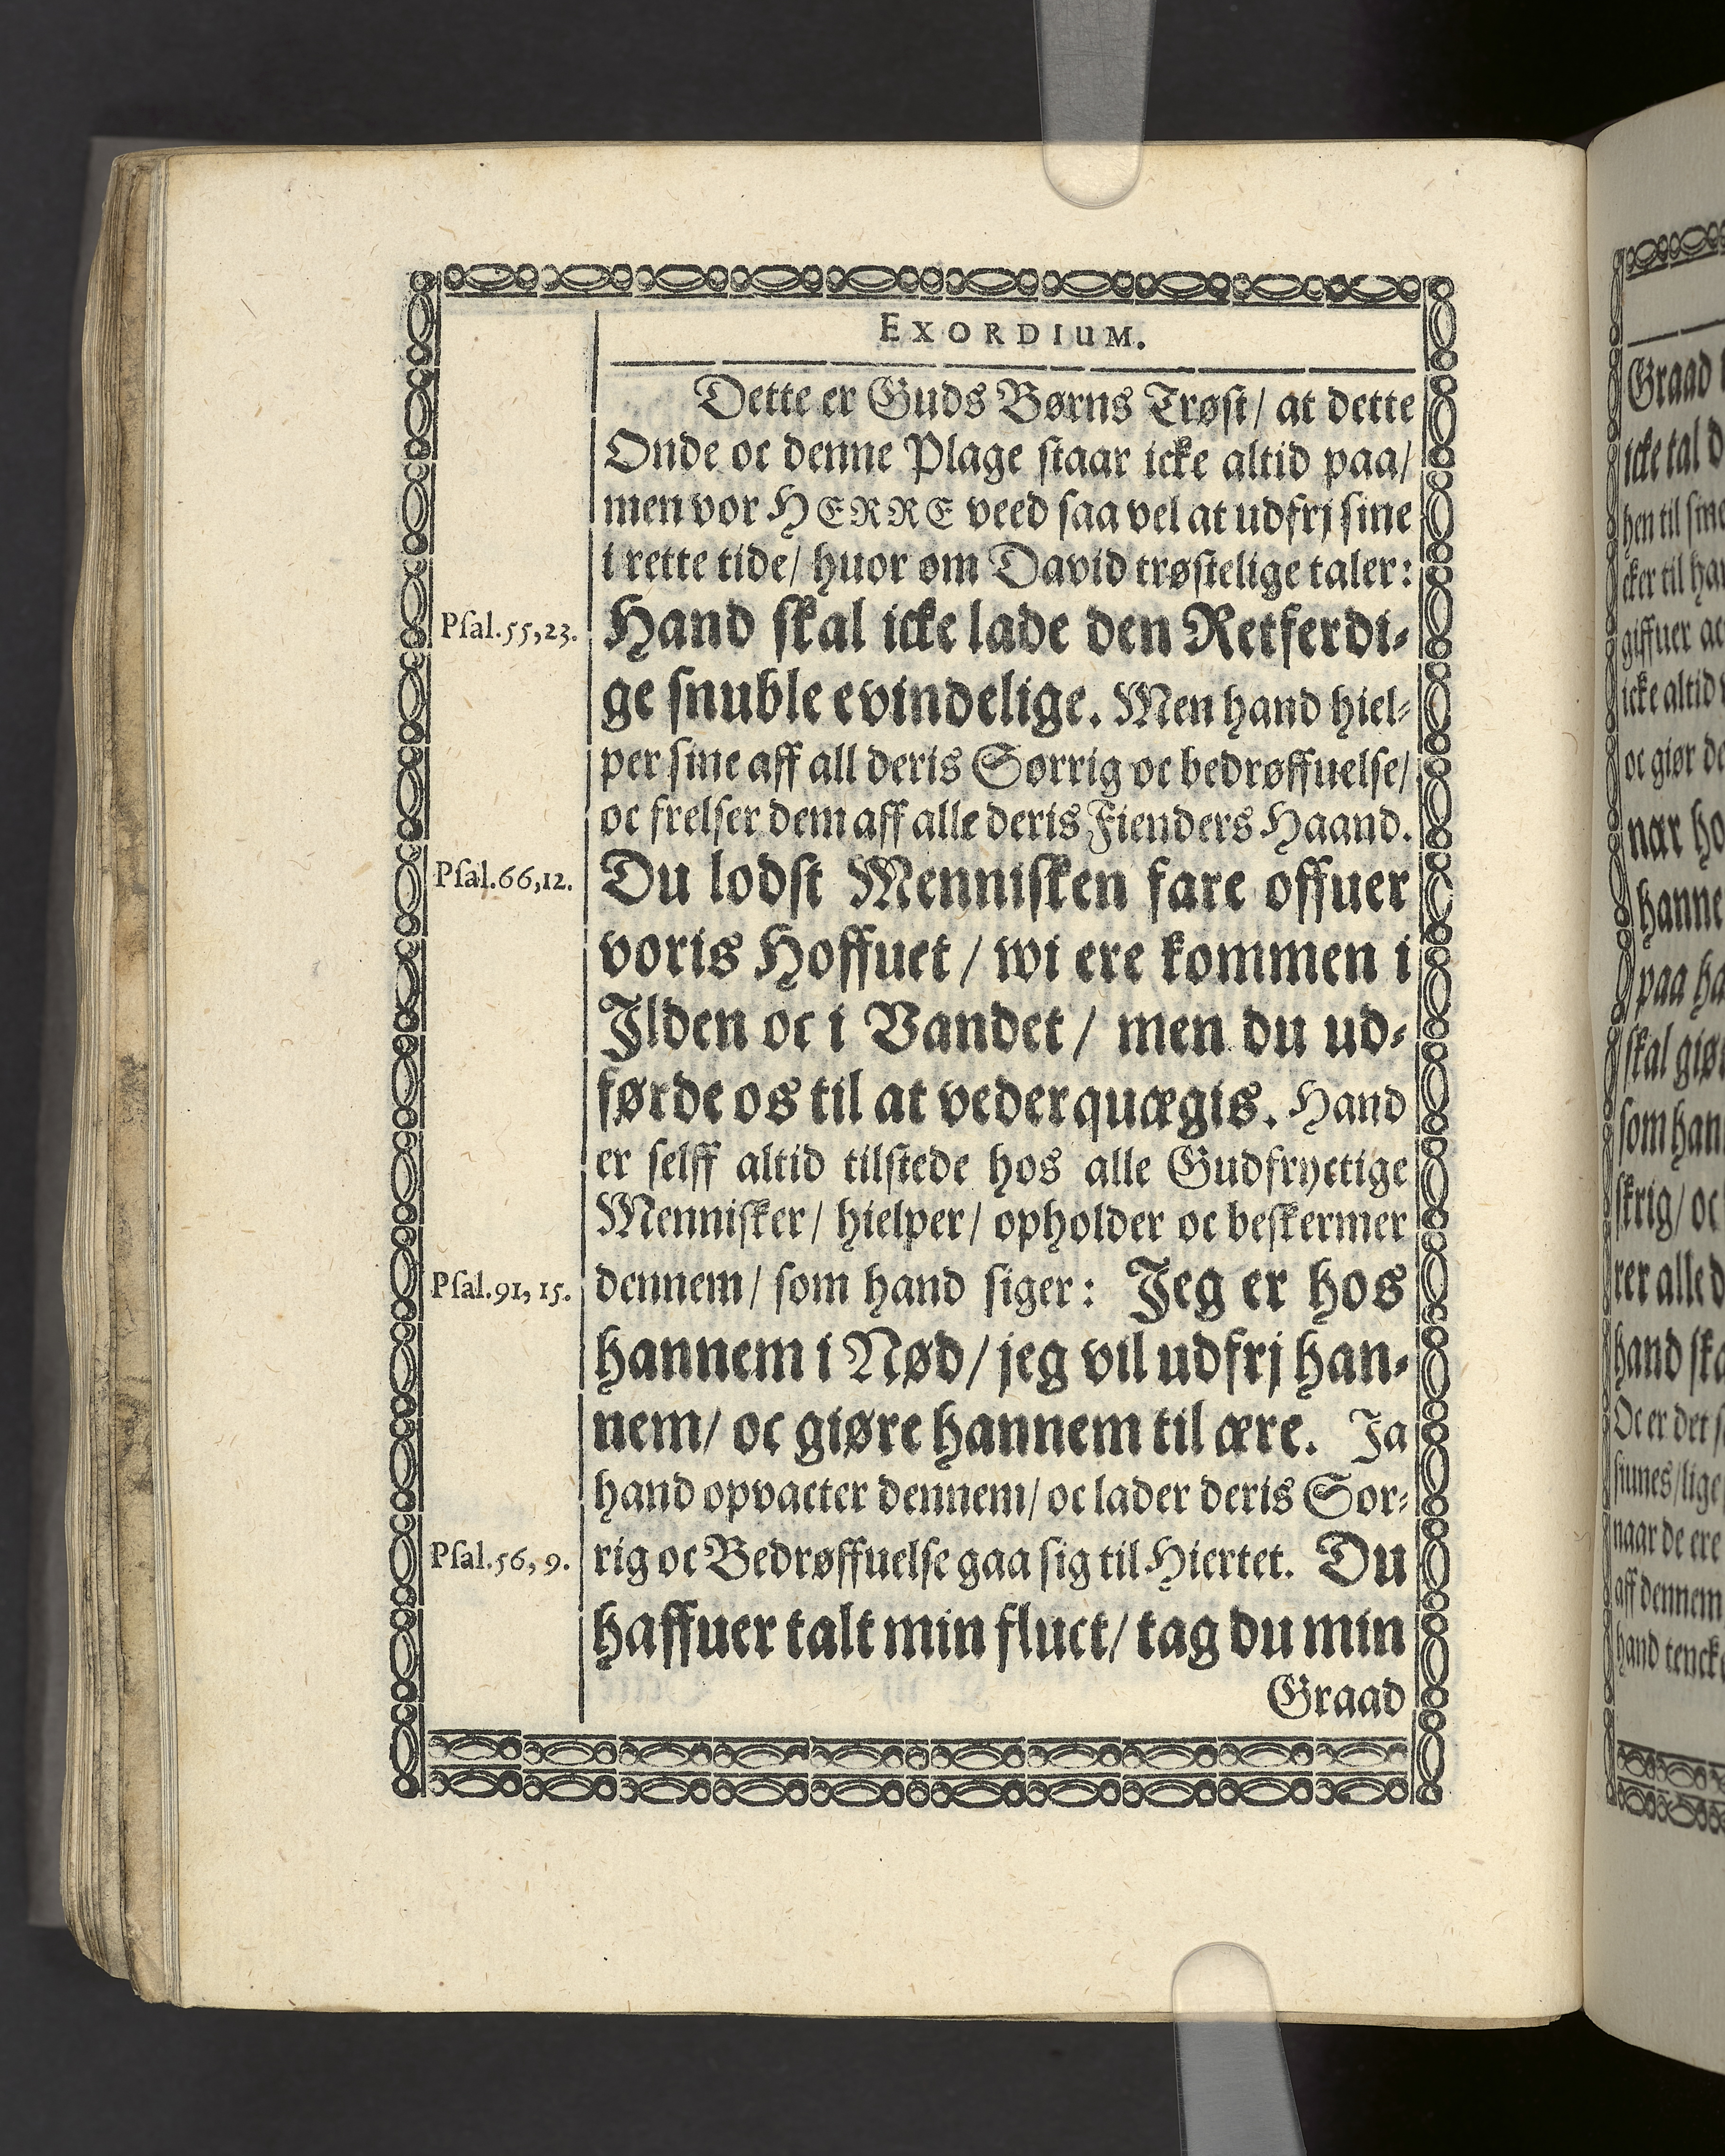 EXORDIUM.
Dette er Guds Børns Trøst/ at dette
Onde oc denne Plage staar icke altid paa/
men vor HERRE veed saa vel at udfrj sine
i rette tide/ huor om David trøstelige taler:
Psal.55,23. Hand skal icke lade den Retferdi-
ge snuble evindelige. Men hand hiel-
per sine aff all deris Sorrig oc bedrøffuelse/
oc frelser dem aff alle deris Fienders Haand.
Psal.66,12. Du lodst Mennisken fare offuer
voris Hoffuet / wi ere kommen i
Ilden oc i Vandet / men du ud-
førde os til at vederquægis. Hand
er selff altid tilstede hos alle Gudfryctige
Mennisker/ hielper/ opholder oc beskermer
Psal.91,15. dennem/ som hand siger: Jeg er hos
hannem i Nød/ jeg vil udfrj han-
nem/ oc giøre hannem til ære. Ja
hand opvacter dennem/ oc lader deris Sor-
Psal.56,9. rig oc Bedrøffuelse gaa sig til Hiertet. Du
haffuer talt min fluct/ tag du min
Graad
Graad
icke tal
hen til
cker til
giffuer
icke altid
oc giør
nar
hanne
paa
skal giø
som han
skrig/ oc
rer alle
hand
Oc er det
siunes/ lige
naar de ere
aff dennem
hand